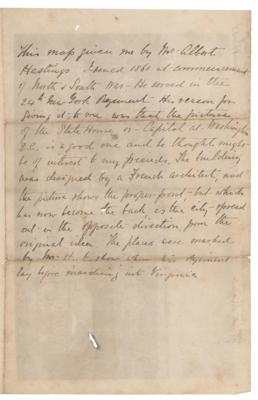 This map given me by Mr. Albert
Hastings. Issued 1861 at commencement
of North & South War - He served in the
24th New York Regiment. His reason for
giving it to me was that the picture
of the State House or Capitol at Washington
D.C. is a good one and he thought might
be of interest to my friends. The building
was designed by a French architect, and
the picture shows the proper front - but which
has now become the back, as the city spread
out in the opposite direction from the
original idea. The places were marked
by Mr. H. to show where his Regiment
lay before marching into Virginia